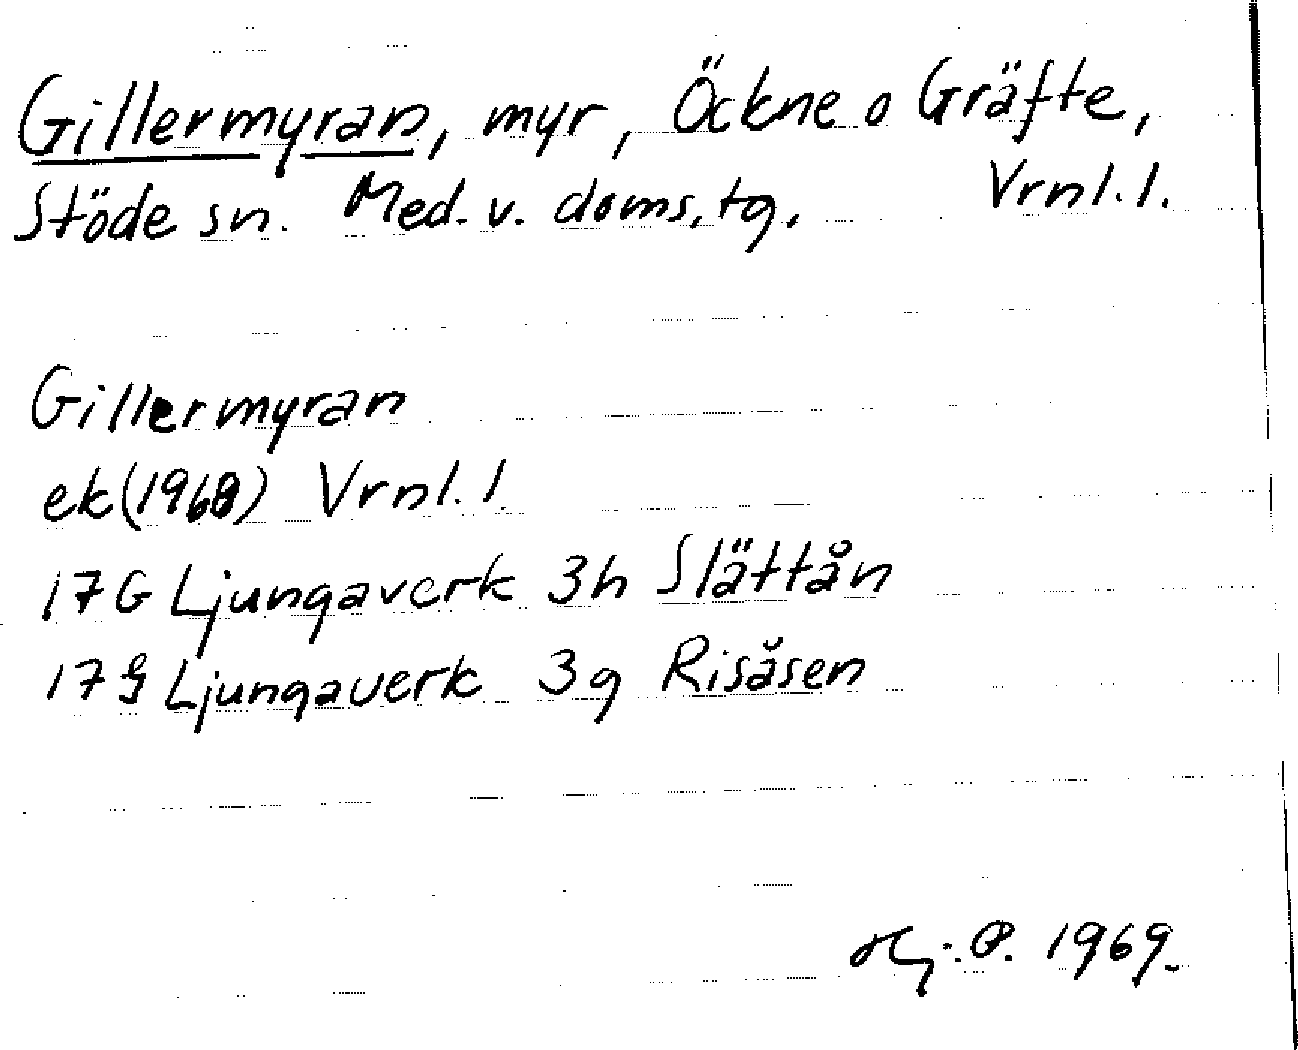 Gillermyran, myr, Öckne o Gräfte,
Stöde sn. Med. v. doms. tg. Vrnl. l.
Gillermyran
ek (1968) Vrnl. l.
17G Ljungaverk 3h Slättån
17G Ljungaverk 3g Risåsen
Hj. P. 1969.